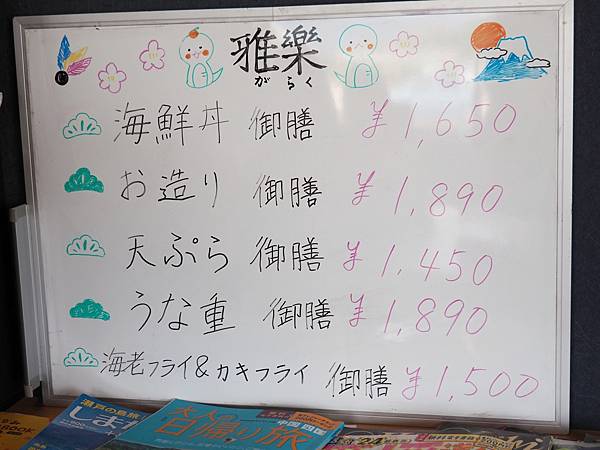 雅樂
がらく
海鮮丼 御膳 ¥1,650
お造り 御膳 ¥1,890
天ぷら 御膳 ¥1,450
うな重 御膳 ¥1,890
海老フライ&カキフライ 御膳 ¥1,500
瀬戸の島旅
しま
大人の
日帰り旅
中国 四国
'24